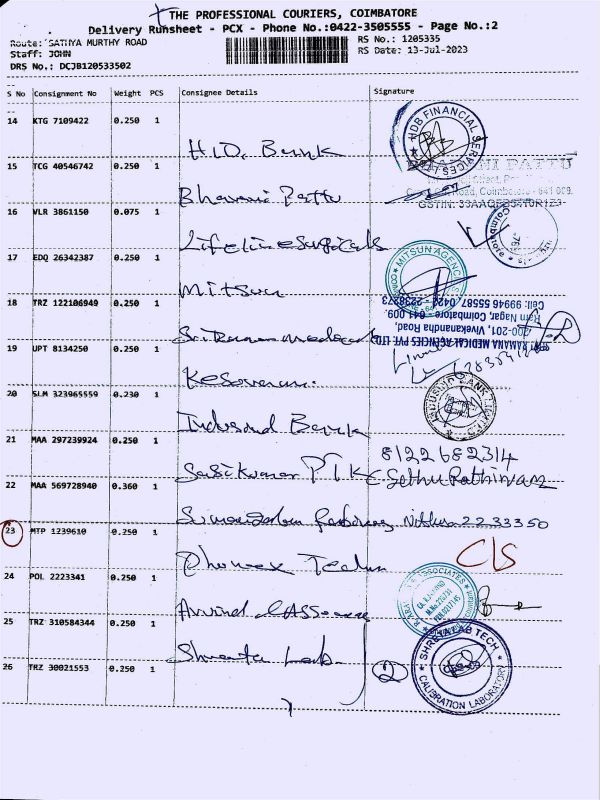 THE PROFESSIONAL COURIERS, COIMBATORE
Delivery Runsheet - PCX - Phone No.:0422-3505555 - Page No.:2
Route: SATHYA MURTHY ROAD
RS No.: 1205335
Staff: JOHN
RS Date: 13-Jul-2023
DRS No.: DCJB120533502
S No Consignment No Weight PCS Consignee Details Signature
14 KTG 7109422 0.250 1
HDB FINANCIAL SERVICES
15 TCG 40546742 0.250 1
PATTU
Coimbatore - 641 009.
16 VLR 3861150 0.075 1
Lifeline Surgicals
Coimbatore
17 EDQ 26342387 0.250 1
Mitsun
MITSUN AGENCI
18 TRZ 122106949 0.250 1
RAMANA MEDICAL AGENCIES PVT. LTD.
200-201, Vivekanandha Road,
Ram Nagar, Coimbatore - 641 009.
Cell: 99946 55587, 0422 - 2238273
19 UPT 8134250 0.250 1
Kesavan
20 SLM 323965559 0.230 1
Indusind Bank
INDUSIND BANK LIMITED
21 MAA 297239924 0.250 1
8122682314
Sasikumar PTK
22 MAA 569728940 0.360 1
2233350
23 MTP 1239610 0.250 1
C/S
Phonex Techn
24 POL 2223341 0.250 1
ASSOCIATES
Arvind & Associates
25 TRZ 310584344 0.250 1
Shreeta Lab
26 TRZ 30021553 0.250 1
2
SHREETA LAB TECH
CALIBRATION LABORATORY